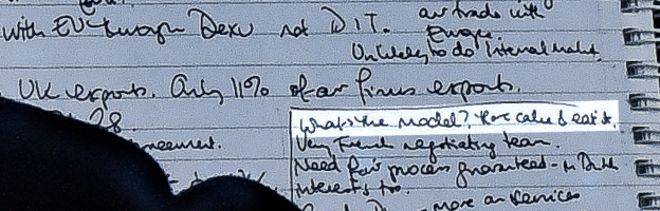 with EU through Dexu not DIT.
our trade with
Europe.
Unlikely to do internal market.
UK exports. Only 11% of our firms exports.
28.
What's the model? Have cake & eat it.
Very French negotiating team.
Need fair process guaranteed
interests too.
more on services